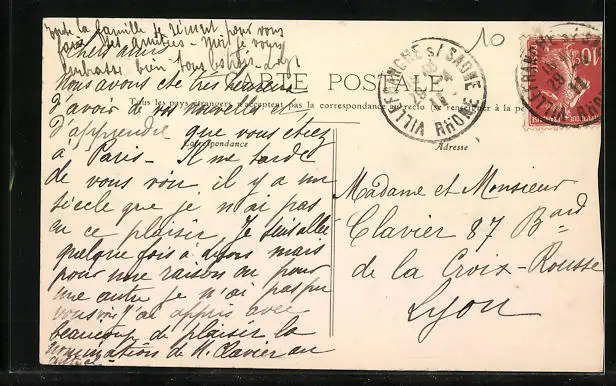 toute la famille se réunit pour vous
faire ses amitiés - Moi je vous
embrasse bien tous
Chers amis
Nous avons été très heureux
d'avoir de vos nouvelles et
d'apprendre que vous étiez
à Paris - Il me tarde
de vous voir, il y a un
siècle que je n'ai pas
eu ce plaisir. Je suis allé
quelque fois à Lyon mais
pour une raison ou pour
une autre je n'ai pas pu
vous voir J'ai appris avec
beaucoup de plaisir la
nominations de M. Clavier au
CARTE POSTALE
Tous les pays étrangers n'acceptent pas la correspondance au recto (se renseigner à la
Correspondance
Adresse
VILLEFRANCHE s/ SAONE
RHONE
10
10
Madame et Monsieur
Clavier 87 Bard
de la Croix-Rousse
Lyon